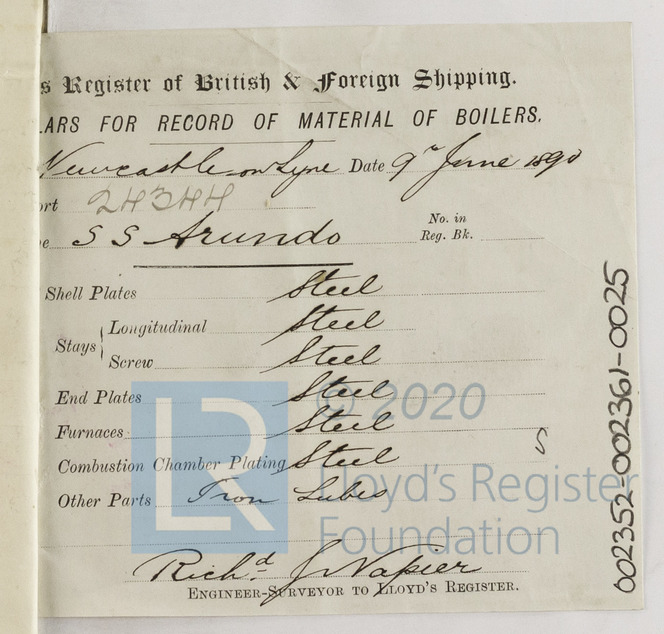 s Register of British & Foreign Shipping.
LARS FOR RECORD OF MATERIAL OF BOILERS.
Newcastle-on-Tyne Date 9th June 1890
ort 24344
e SS Arundo No. in Reg. Bk.
Shell Plates Steel
Stays Longitudinal Steel
Screw Steel
End Plates Steel
Furnaces Steel
Combustion Chamber Plating Steel
Other Parts Iron Tubes
Richd. J Napier
ENGINEER-SURVEYOR TO LLOYD'S REGISTER.
002352-002361-0025
LR
© 2020
Lloyd's Register
Foundation